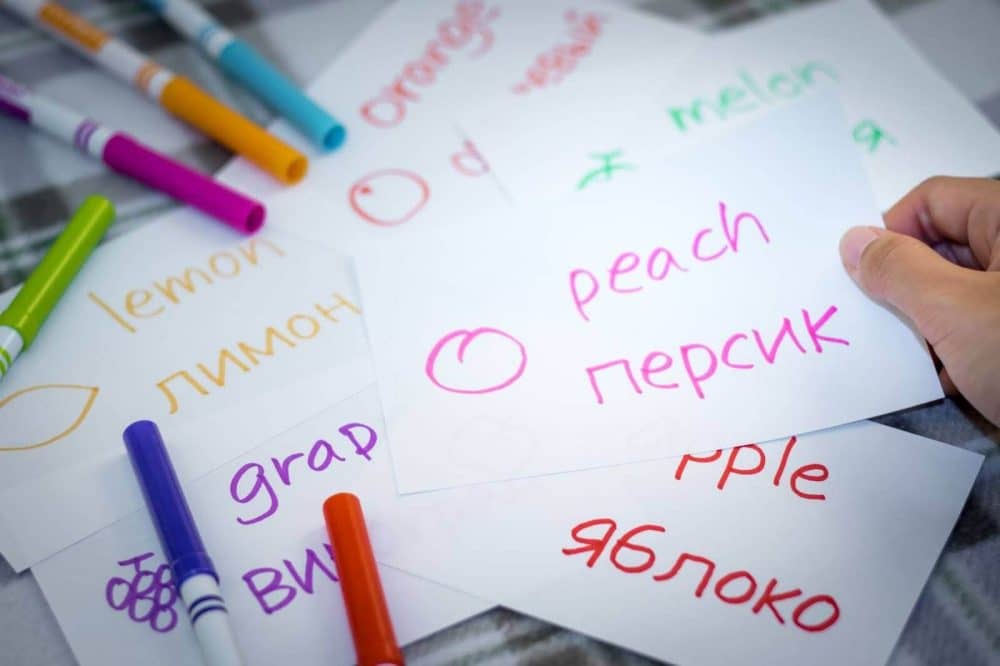 orange
melon
я
peach
персик
lemon
лимон
grap
ви
pple
яблоко